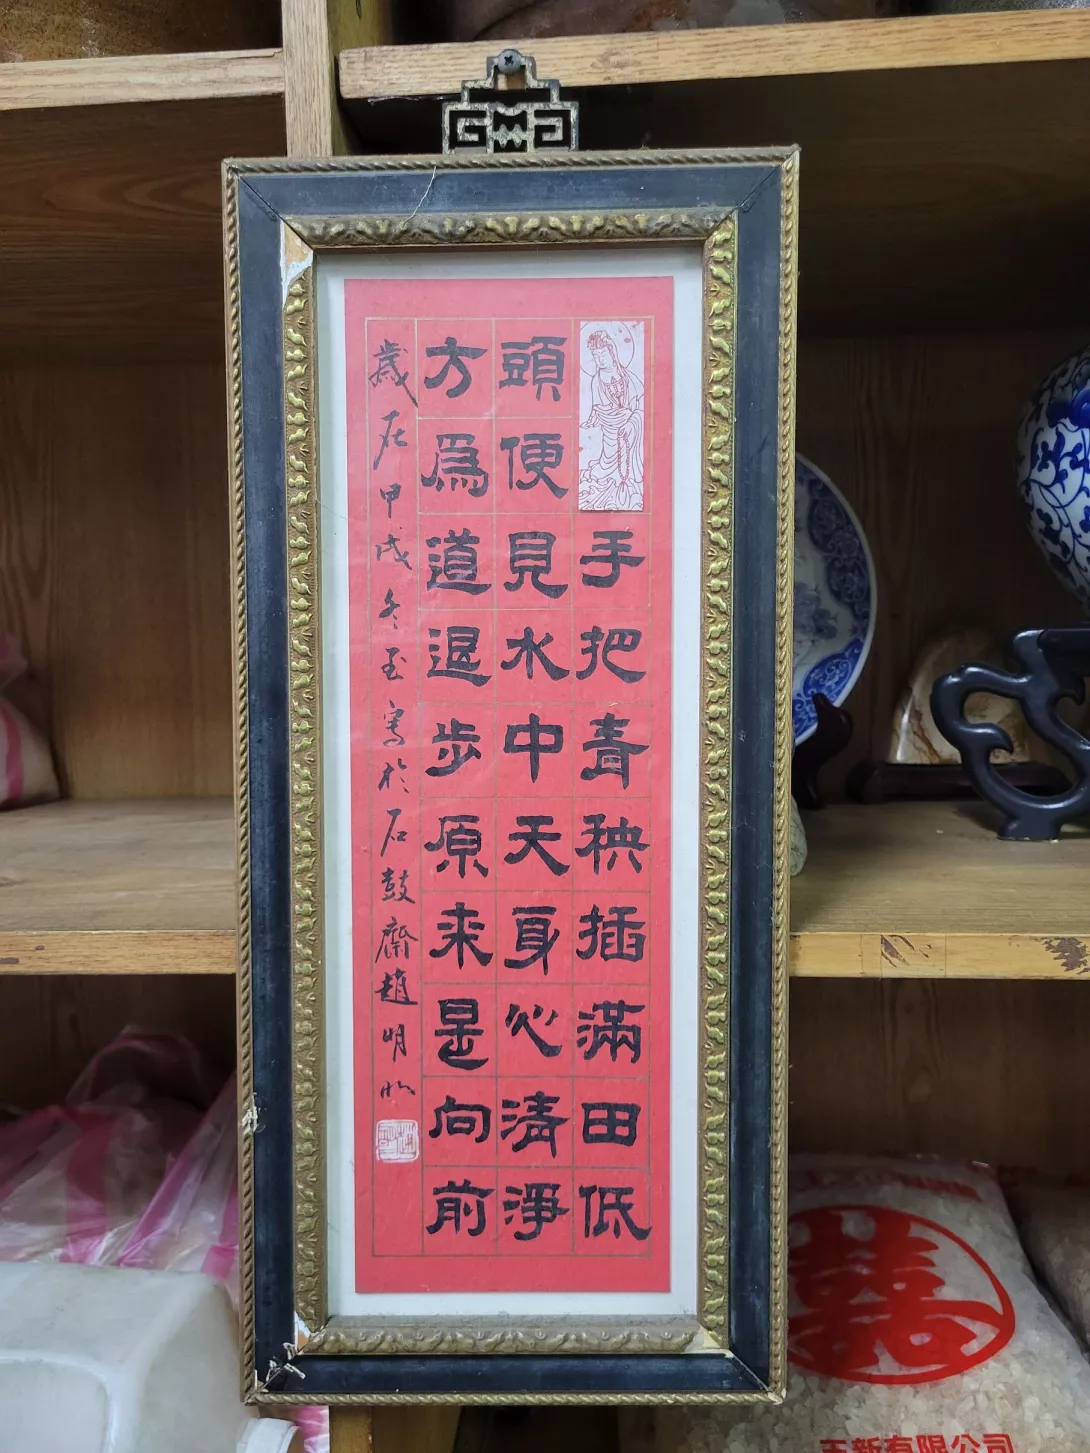 手把青秧插滿田低
頭便見水中天身心清淨
方爲道退步原来是向前
歲在甲戌冬至寫於石鼓齋趙明
囍
王新有限公司